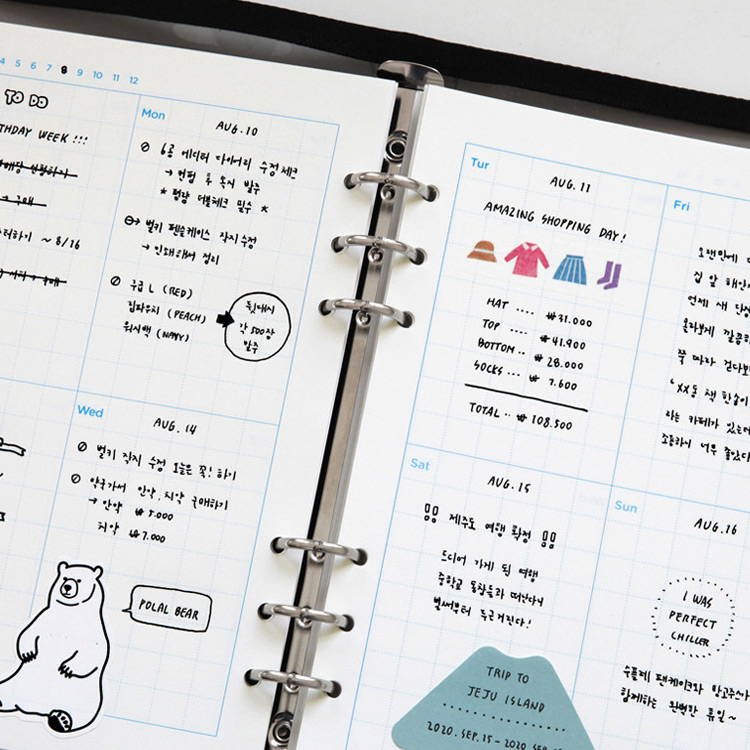 4 5 6 7 8 9 10 11 12
TO DO
THDAY WEEK!!!
~ 8/16
Mon
AUG.10
6공 에디터 다이어리 수정 체크
→ 컨펌 후 독지 발주
* 평량 더블체크 필수 *
벌키 펜슬케이스 직지 수정
→ 인쇄해서 정리
구름 L (RED)
집파우치 (PEACH)
워시백 (NAVY)
각 500장
발주
Wed
AUG.14
벌키 직지 수정 오늘은 꼭! 하기
약국가서 안약, 치약 구매하기
→ 안약 ₩5.000
치약 ₩7.000
POLAL BEAR
Tur
AUG.11
AMAZING SHOPPING DAY!
HAT .... ₩31.000
TOP .... ₩41.900
BOTTOM.. ₩28.000
SOCKS ... ₩7.600
TOTAL .. ₩108.500
Fri
오랜만에
집 앞 해안
언제 새 단장
몰라보게 깔끔하
쭉 따라 걷다보
'XX동 책 한송이
라는 카페가 있는데
소문하니 너무 좋았다
Sat
AUG.15
!! 제주도 여행 확정 !!
드디어 가게 된 여행
중학교 동창들과 떠난다니
벌써부터 두근거린다!
TRIP TO
JEJU ISLAND
2020.SEP.15-2020.SEP
Sun
AUG.16
I WAS
PERFECT
CHILLER
수플레 팬케이크와 망고주스
함께하는 완벽한 휴일~